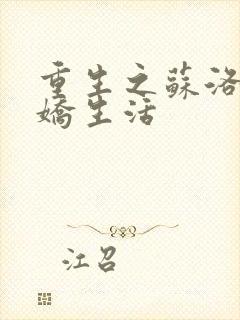 重生之蘇洛
嬌生活
江召